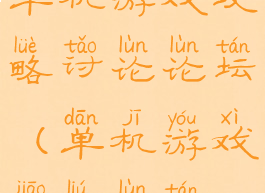 单机游戏攻
lüè tǎo lùn lùn tán
略讨论论坛
dān jī yóu xì
（单机游戏
jiāo liú lùn tán